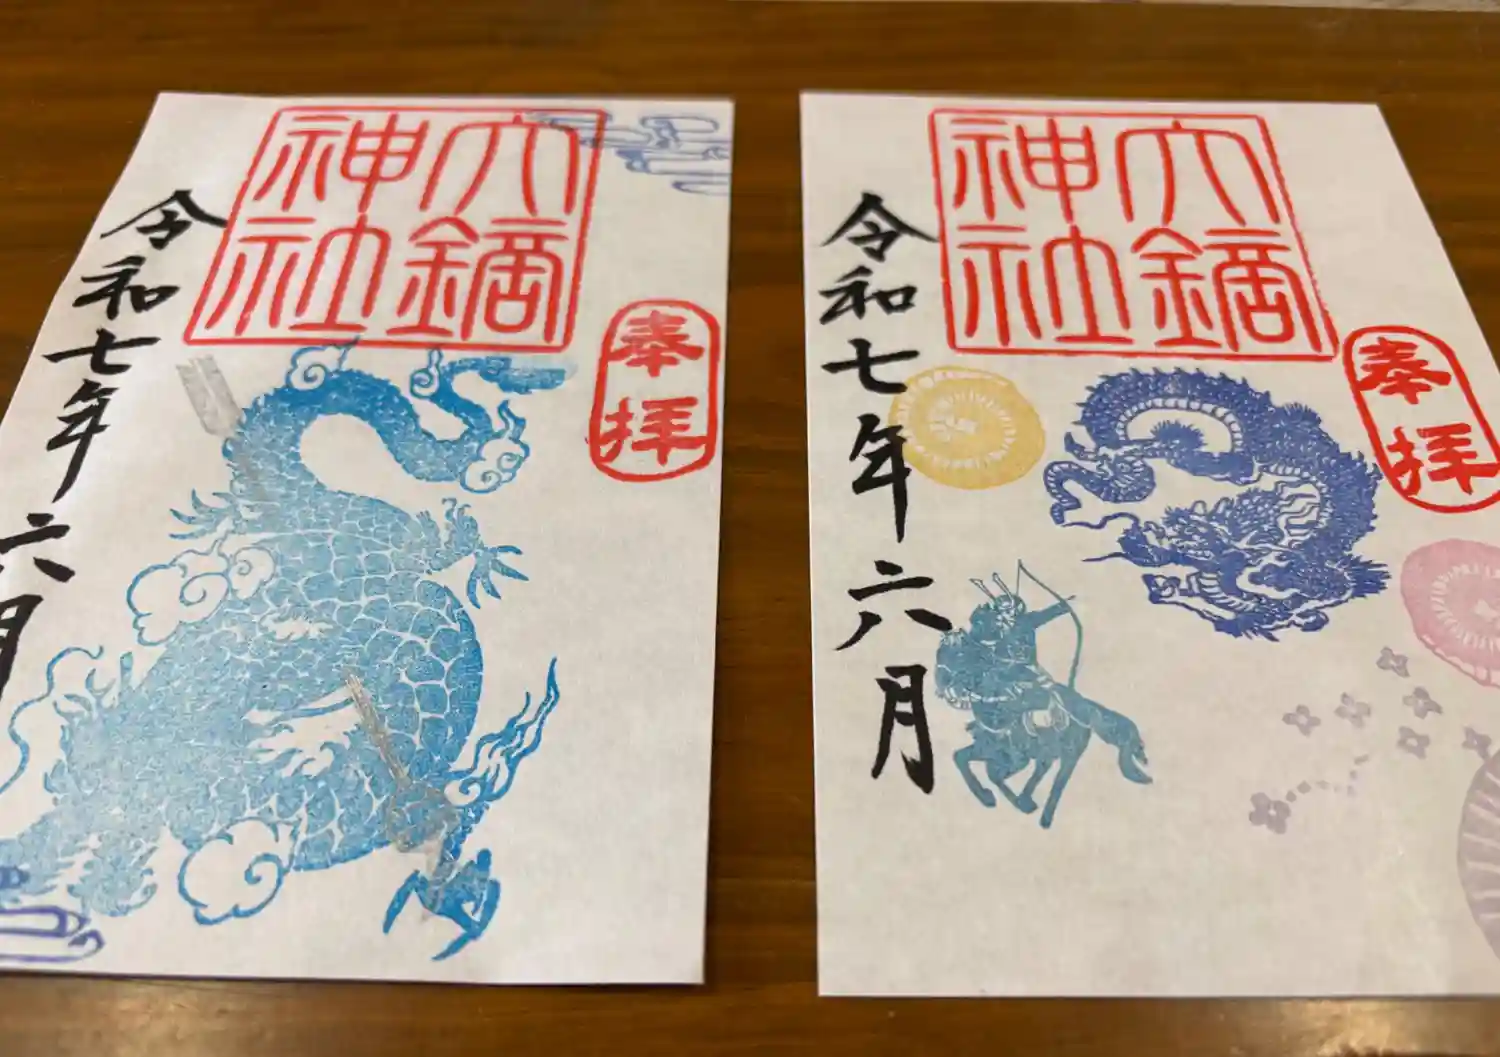 奉拝
六鏑神社
令和七年六月
奉拝
六鏑神社
令和七年六月